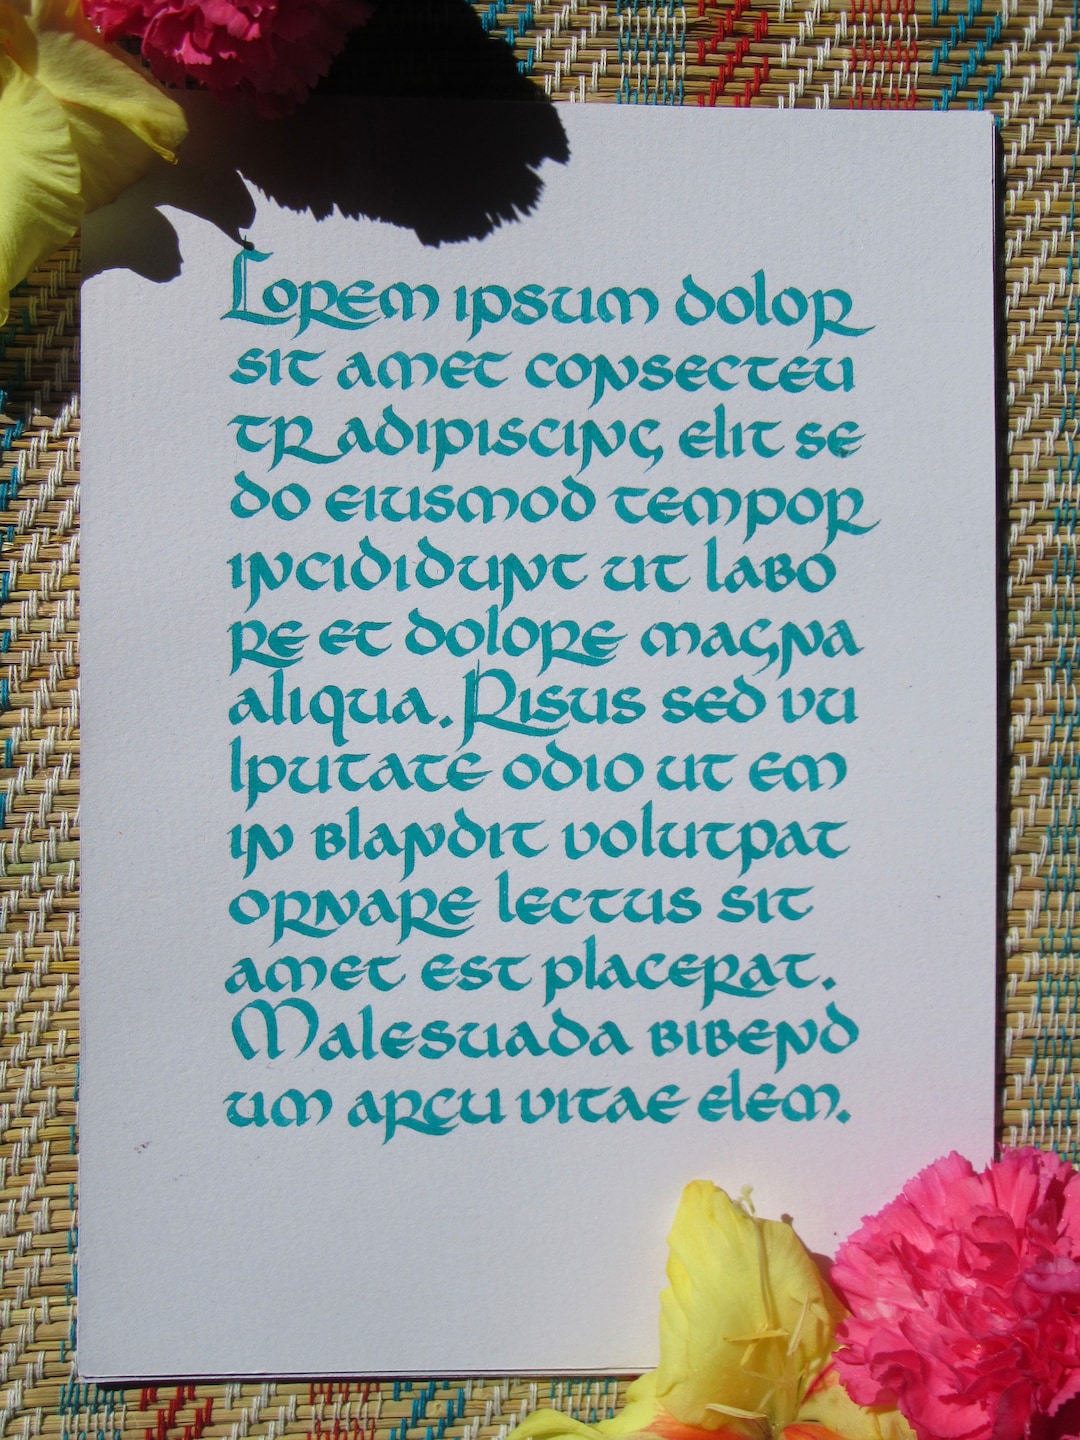 Lorem ipsum dolor
sit amet consecteu
tr adipiscing elit se
do eiusmod tempor
incididunt ut labo
re et dolore magna
aliqua. Risus sed vu
lputate odio ut em
in blandit volutpat
ornare lectus sit
amet est placerat.
Malesuada bibend
um arcu vitae elem.